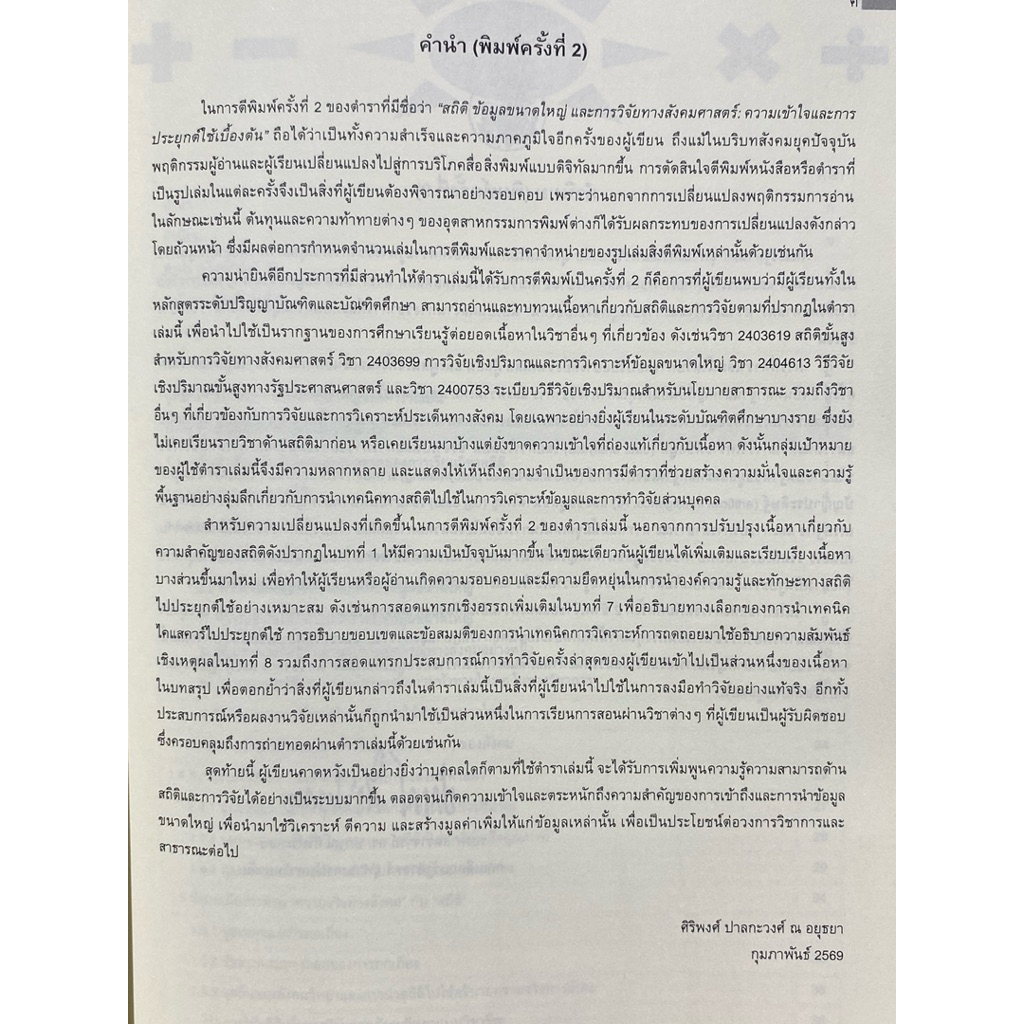 คำนำ (พิมพ์ครั้งที่ 2)
ในการตีพิมพ์ครั้งที่ 2 ของตำราที่มีชื่อว่า “สถิติ ข้อมูลขนาดใหญ่ และการวิจัยทางสังคมศาสตร์: ความเข้าใจและการ
ประยุกต์ใช้เบื้องต้น” ถือได้ว่าเป็นทั้งความสำเร็จและความภาคภูมิใจอีกครั้งของผู้เขียน ถึงแม้ในบริบทสังคมยุคปัจจุบัน
พฤติกรรมผู้อ่านและผู้เรียนเปลี่ยนแปลงไปสู่การบริโภคสื่อสิ่งพิมพ์แบบดิจิทัลมากขึ้น การตัดสินใจตีพิมพ์หนังสือหรือตำราที่
เป็นรูปเล่มในแต่ละครั้งจึงเป็นสิ่งที่ผู้เขียนต้องพิจารณาอย่างรอบคอบ เพราะว่านอกจากการเปลี่ยนแปลงพฤติกรรมการอ่าน
ในลักษณะเช่นนี้ ต้นทุนและความท้าทายต่างๆ ของอุตสาหกรรมการพิมพ์ต่างก็ได้รับผลกระทบของการเปลี่ยนแปลงดังกล่าว
โดยถ้วนหน้า ซึ่งมีผลต่อการกำหนดจำนวนเล่มในการตีพิมพ์และราคาจำหน่ายของรูปเล่มสิ่งตีพิมพ์เหล่านั้นด้วยเช่นกัน
ความน่ายินดีอีกประการที่มีส่วนทำให้ตำราเล่มนี้ได้รับการตีพิมพ์เป็นครั้งที่ 2 ก็คือการที่ผู้เขียนพบว่ามีผู้เรียนทั้งใน
หลักสูตรระดับปริญญาบัณฑิตและบัณฑิตศึกษา สามารถอ่านและทบทวนเนื้อหาเกี่ยวกับสถิติและการวิจัยตามที่ปรากฏในตำรา
เล่มนี้ เพื่อนำไปใช้เป็นรากฐานของการศึกษาเรียนรู้ต่อยอดเนื้อหาในวิชาอื่นๆ ที่เกี่ยวข้อง ดังเช่นวิชา 2403619 สถิติขั้นสูง
สำหรับการวิจัยทางสังคมศาสตร์ วิชา 2403699 การวิจัยเชิงปริมาณและการวิเคราะห์ข้อมูลขนาดใหญ่ วิชา 2404613 วิธีวิจัย
เชิงปริมาณขั้นสูงทางรัฐประศาสนศาสตร์ และวิชา 2400753 ระเบียบวิธีวิจัยเชิงปริมาณสำหรับนโยบายสาธารณะ รวมถึงวิชา
อื่นๆ ที่เกี่ยวข้องกับการวิจัยและการวิเคราะห์ประเด็นทางสังคม โดยเฉพาะอย่างยิ่งผู้เรียนในระดับบัณฑิตศึกษาบางราย ซึ่งยัง
ไม่เคยเรียนรายวิชาด้านสถิติมาก่อน หรือเคยเรียนมาบ้างแต่ยังขาดความเข้าใจที่ถ่องแท้เกี่ยวกับเนื้อหา ดังนั้นกลุ่มเป้าหมาย
ของผู้ใช้ตำราเล่มนี้จึงมีความหลากหลาย และแสดงให้เห็นถึงความจำเป็นของการมีตำราที่ช่วยสร้างความมั่นใจและความรู้
พื้นฐานอย่างลุ่มลึกเกี่ยวกับการนำเทคนิคทางสถิติไปใช้ในการวิเคราะห์ข้อมูลและการทำวิจัยส่วนบุคคล
สำหรับความเปลี่ยนแปลงที่เกิดขึ้นในการตีพิมพ์ครั้งที่ 2 ของตำราเล่มนี้ นอกจากการปรับปรุงเนื้อหาเกี่ยวกับ
ความสำคัญของสถิติดังปรากฏในบทที่ 1 ให้มีความเป็นปัจจุบันมากขึ้น ในขณะเดียวกันผู้เขียนได้เพิ่มเติมและเรียบเรียงเนื้อหา
บางส่วนขึ้นมาใหม่ เพื่อทำให้ผู้เรียนหรือผู้อ่านเกิดความรอบคอบและมีความยืดหยุ่นในการนำองค์ความรู้และทักษะทางสถิติ
ไปประยุกต์ใช้อย่างเหมาะสม ดังเช่นการสอดแทรกเชิงอรรถเพิ่มเติมในบทที่ 7 เพื่ออธิบายทางเลือกของการนำเทคนิค
ไคแสควร์ไปประยุกต์ใช้ การอธิบายขอบเขตและข้อสมมติของการนำเทคนิคการวิเคราะห์การถดถอยมาใช้อธิบายความสัมพันธ์
เชิงเหตุผลในบทที่ 8 รวมถึงการสอดแทรกประสบการณ์การทำวิจัยครั้งล่าสุดของผู้เขียนเข้าไปเป็นส่วนหนึ่งของเนื้อหา
ในบทสรุป เพื่อตอกย้ำว่าสิ่งที่ผู้เขียนกล่าวถึงในตำราเล่มนี้เป็นสิ่งที่ผู้เขียนนำไปใช้ในการลงมือทำวิจัยอย่างแท้จริง อีกทั้ง
ประสบการณ์หรือผลงานวิจัยเหล่านั้นก็ถูกนำมาใช้เป็นส่วนหนึ่งในการเรียนการสอนผ่านวิชาต่างๆ ที่ผู้เขียนเป็นผู้รับผิดชอบ
ซึ่งครอบคลุมถึงการถ่ายทอดผ่านตำราเล่มนี้ด้วยเช่นกัน
สุดท้ายนี้ ผู้เขียนคาดหวังเป็นอย่างยิ่งว่าบุคคลใดก็ตามที่ใช้ตำราเล่มนี้ จะได้รับการเพิ่มพูนความรู้ความสามารถด้าน
สถิติและการวิจัยได้อย่างเป็นระบบมากขึ้น ตลอดจนเกิดความเข้าใจและตระหนักถึงความสำคัญของการเข้าถึงและการนำข้อมูล
ขนาดใหญ่ เพื่อนำมาใช้วิเคราะห์ ตีความ และสร้างมูลค่าเพิ่มให้แก่ข้อมูลเหล่านั้น เพื่อเป็นประโยชน์ต่อวงการวิชาการและ
สาธารณะต่อไป
ศิริพงศ์ ปาลกะวงศ์ ณ อยุธยา
กุมภาพันธ์ 2569